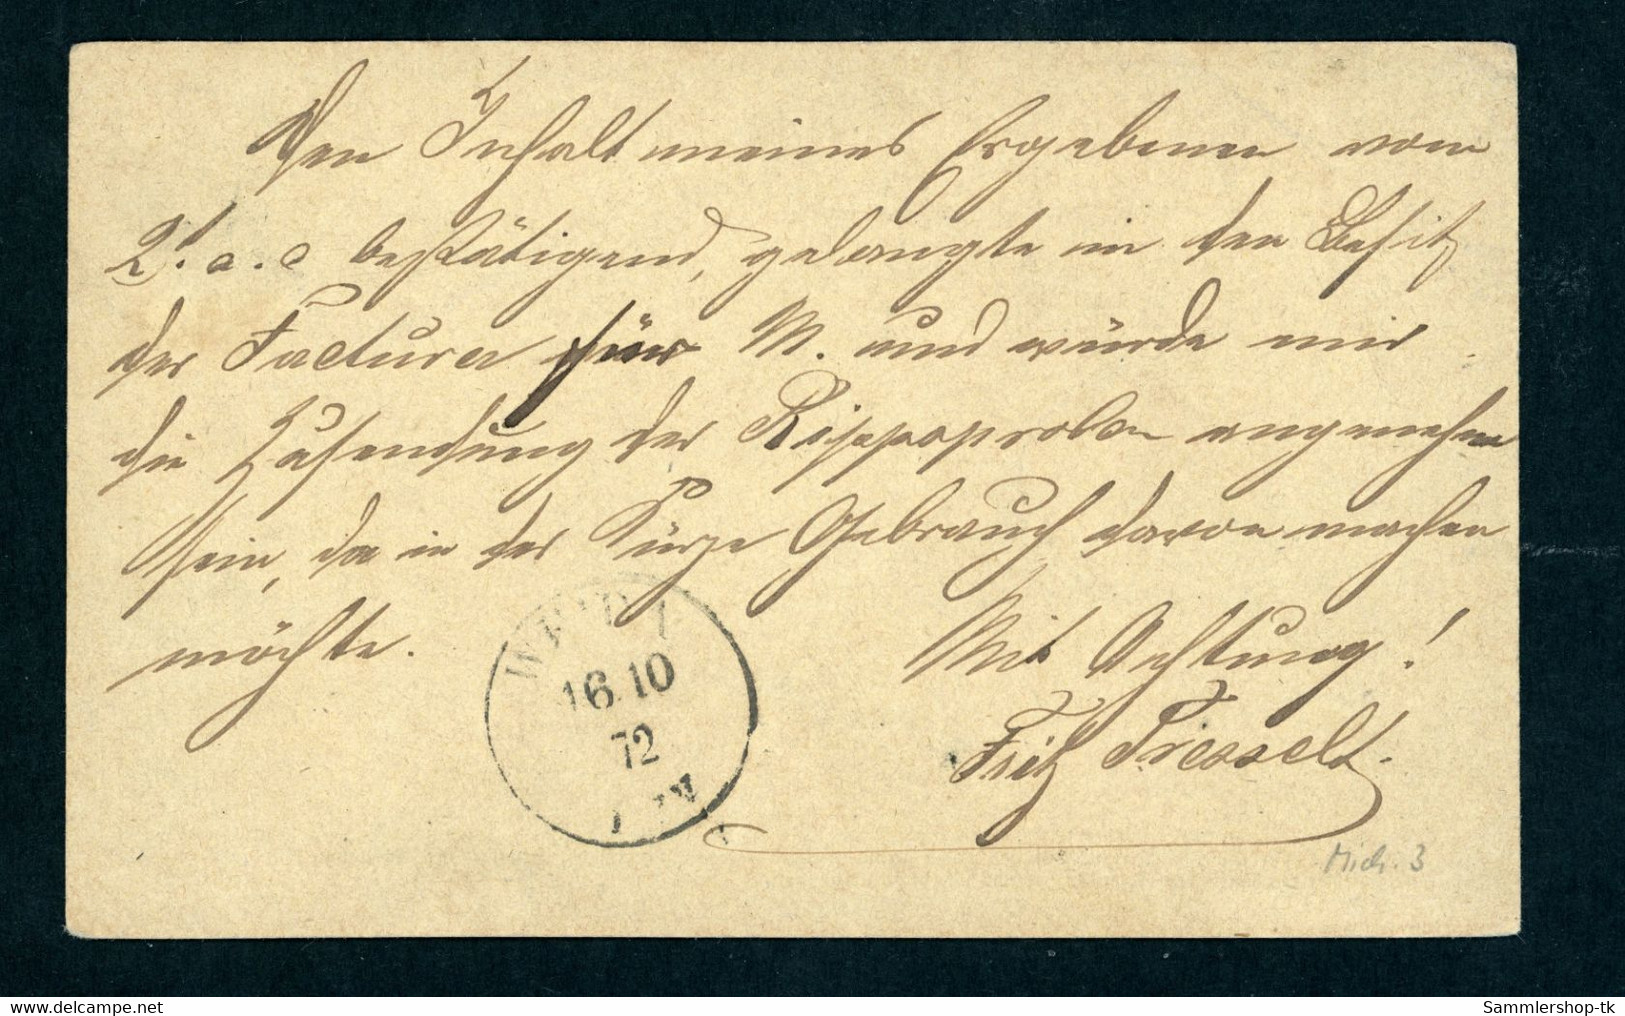 Den Inhalt meines Ergebenen vom
2t. a. c bestätigend, gelangte in den Besitz
der Factura für M. und würde mir
die Zusendung der Rippsproben angenehm
sein, da in der Kürze Gebrauch davon machen
möchte.
Mit Achtung!
Fritz Tresselt.
WEIDA
16.10
72
Mich. 3
www.delcampe.net
Sammlershop-tk